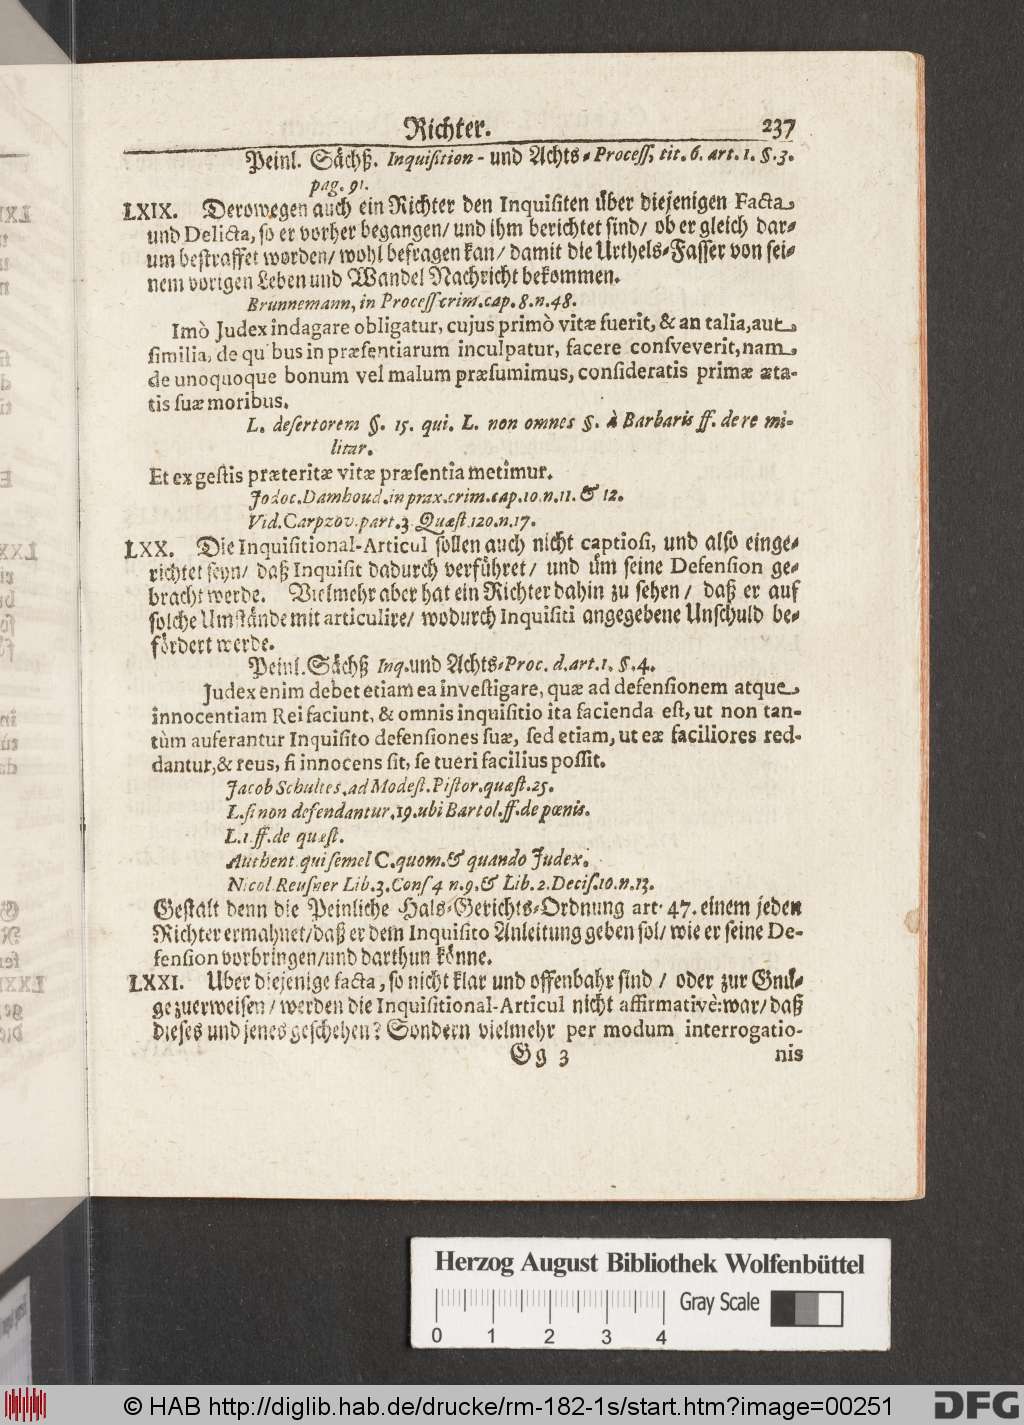 Richter. 237
Peinl. Sächß. Inquisition- und Achts-Process, tit. 6. art. 1. §. 3.
pag. 91.
LXIX. Derowegen auch ein Richter den Inquisiten über diejenigen Facta
und Delicta, so er vorher begangen/ und ihm berichtet sind/ ob er gleich dar-
um bestraffet worden/ wohl befragen kan/ damit die Urthels-Fasser von sei-
nem vorigen Leben und Wandel Nachricht bekommen.
Brunnemann, in Process crim. cap. 8. n. 48.
Imò Judex indagare obligatur, cujus primò vitæ fuerit, & an talia, aut
similia, de quibus in præsentiarum inculpatur, facere consveverit, nam
de unoquoque bonum vel malum præsumimus, consideratis primæ æta-
tis suæ moribus.
L. desertorem §. 15. qui. L. non omnes §. à Barbaris ff. de re mi-
litar.
Et ex gestis præteritæ vitæ præsentia metimur.
Jodoc. Damhoud. in prax. crim. cap. 10. n. 11. & 12.
Vid. Carpzov. part. 3. Quæst. 120. n. 17.
LXX. Die Inquisitional-Articul sollen auch nicht captiosi, und also einge-
richtet seyn/ daß Inquisit dadurch verführet/ und üm seine Defension ge-
bracht werde. Vielmehr aber hat ein Richter dahin zu sehen/ daß er auf
solche Umstände mit articulire/ wodurch Inquisiti angegebene Unschuld be-
fördert werde.
Peinl. Sächß Inq. und Achts-Proc. d. art. 1. §. 4.
Judex enim debet etiam ea investigare, quæ ad defensionem atque
innocentiam Rei faciunt, & omnis inquisitio ita facienda est, ut non tan-
tùm auferantur Inquisito defensiones suæ, sed etiam, ut eæ faciliores red-
dantur, & reus, si innocens sit, se tueri facilius possit.
Jacob Schultes, ad Modest. Pistor. quæst. 25.
L. si non defendantur. 19. ubi Bartol. ff. de pœnis.
L. 1. ff. de quæst.
Authent. qui semel C. quom. & quando Judex.
Nicol. Reusner Lib. 3. Cons 4 n. 9. & Lib. 2. Decis. 10. n. 13.
Gestalt denn die Peinliche Hals-Gerichts-Ordnung art. 47. einem jeden
Richter ermahnet/ daß er dem Inquisito Anleitung geben sol/ wie er seine De-
fension vorbringen/ und darthun könne.
LXXI. Uber diejenige facta, so nicht klar und offenbahr sind/ oder zur Gnü-
ge zuerweisen/ werden die Inquisitional-Articul nicht affirmativè: war/ daß
dieses und jenes geschehen? Sondern vielmehr per modum interrogatio-
Gg 3 nis
Herzog August Bibliothek Wolfenbüttel
Gray Scale
0 1 2 3 4
© HAB http://diglib.hab.de/drucke/rm-182-1s/start.htm?image=00251
DFG